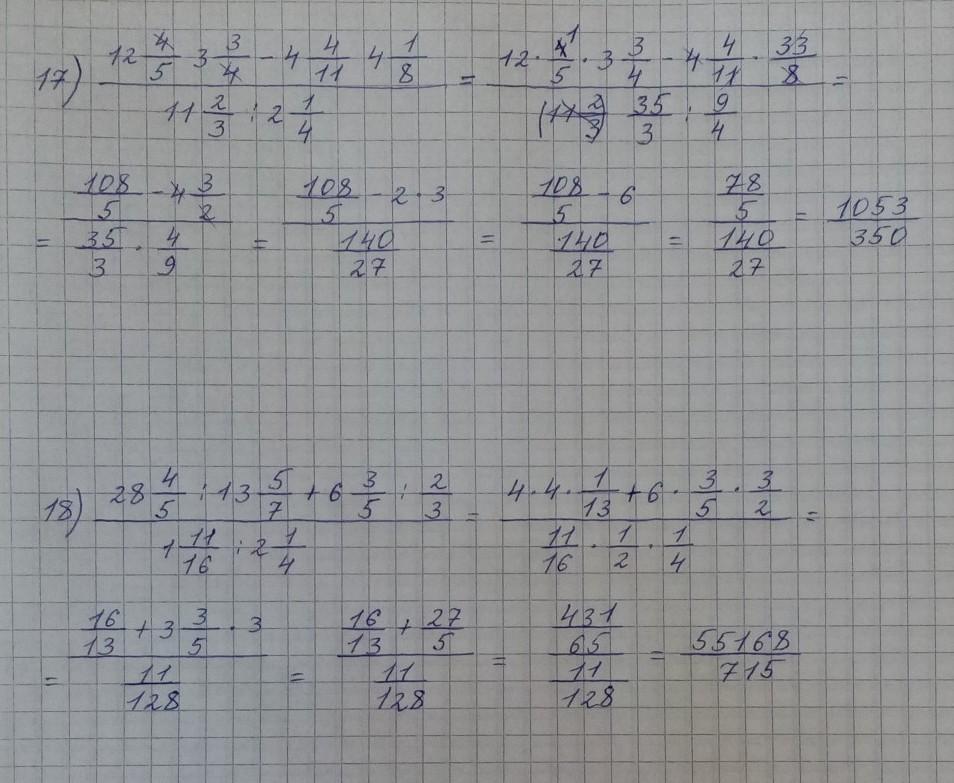 17) (12 4/5 3 3/4 - 4 4/11 4 1/8) / (11 2/3 : 2 1/4) = (12 · 4¹/5 · 3 3/4 - 4 4/11 · 33/8) / ((11 2/3) 35/3 : 9/4) =
= (108/5 - 4 3/2) / (35/3 · 4/9) = (108/5 - 2 · 3) / (140/27) = (108/5 - 6) / (140/27) = (78/5) / (140/27) = 1053/350
18) (28 4/5 : 13 5/7 + 6 3/5 : 2/3) / (1 11/16 : 2 1/4) = (4 · 4 · 1/13 + 6 · 3/5 · 3/2) / (11/16 · 1/2 · 1/4) =
= (16/13 + 3 3/5 · 3) / (11/128) = (16/13 + 27/5) / (11/128) = (431/65) / (11/128) = 55168/715